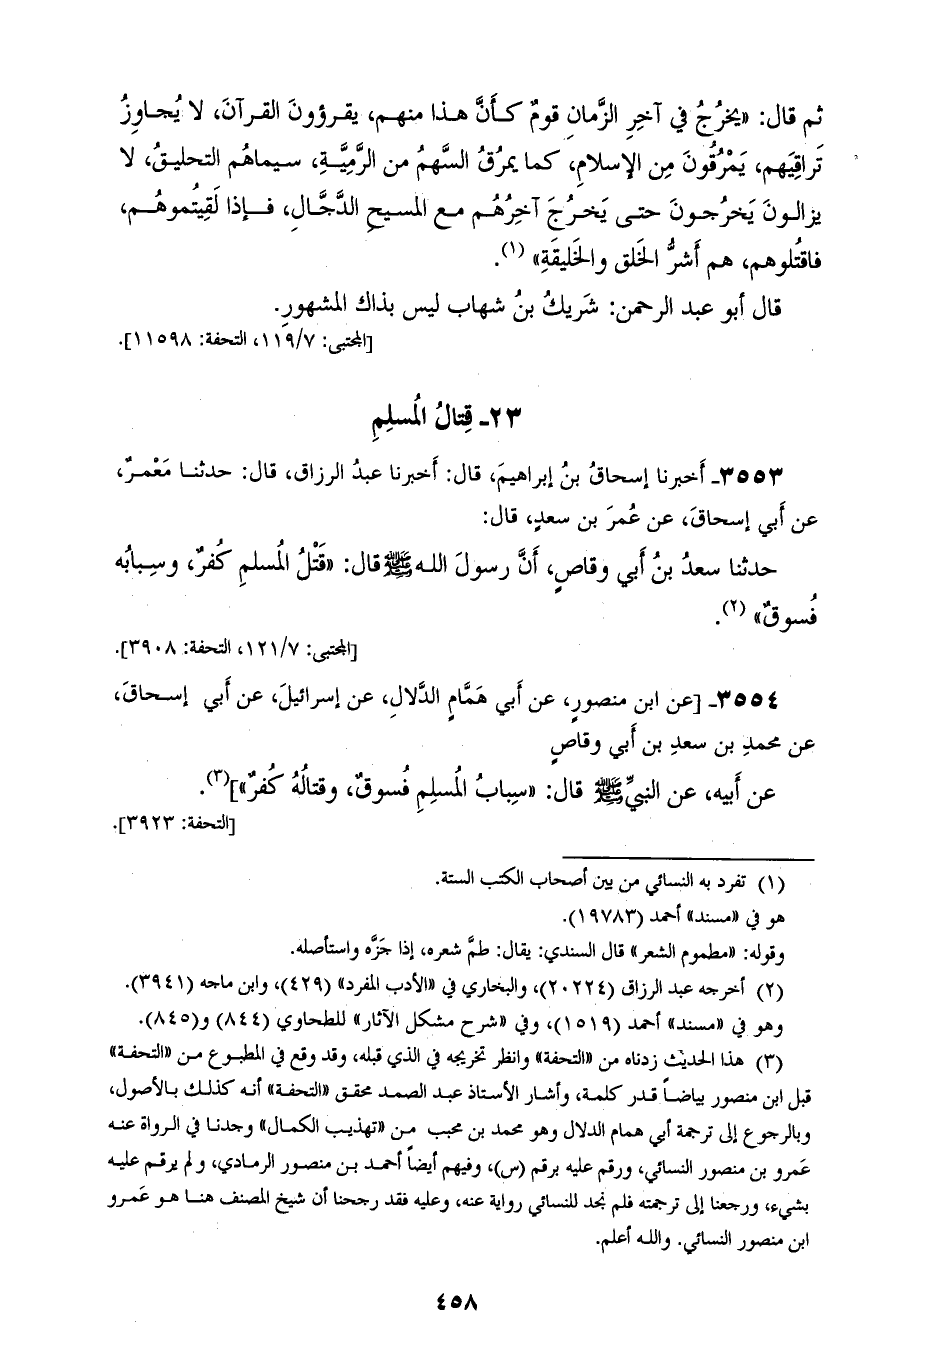 ثم قال: «يخرُجُ في آخرِ الزَّمانِ قومٌ كـأَنَّ هـذا منهـم، يقـرؤونَ القـرآنَ، لا يُجـاوِزُ
تَراقِيَهم، يَمْرُقُونَ مِن الإسلامِ، كما يمرُقُ السَّهمُ من الرَّمِيَّـةِ، سـيماهُم التحليـقُ، لا
يزالـونَ يَخرُجـونَ حتـى يَخـرُجَ آخِرُهُـم مـع المسيحِ الدَّجَّـالِ، فـإذا لَقِيتُموهُـم،
فاقتُلوهم، هم أَشرُّ الخَلق والخَليقَةِ» (١).
قال أبو عبد الرحمن: شَريكُ بنُ شهاب ليس بذاك المشهورِ.
[المجتبى: ١١٩/٧، التحفة: ١١٥٩٨].
٢٣ـ قِتالُ المُسلِمِ
٣٥٥٣ـ أَخبرنا إسحاقُ بنُ إبراهيمَ، قال: أَخبرنا عبدُ الرزاق، قال: حدثنـا مَعْمـرٌ،
عن أَبي إسحاقَ، عن عُمرَ بن سعدٍ، قال:
حدثنا سعدُ بنُ أَبي وقاصٍ، أَنَّ رسولَ اللـه ﷺ قال: «قَتْلُ المُسلمِ كُفرٌ، وسِـبابُه
فُسوقٌ» (٢).
[المجتبى: ١٢١/٧، التحفة: ٣٩٠٨].
٣٥٥٤ـ [عن ابن منصورٍ، عن أَبي هَمَّامٍ الدَّلالِ، عن إسرائيلَ، عن أَبي إسـحاقَ،
عن محمدِ بن سعدِ بن أَبي وقاصٍ
عن أَبيه، عن النبيِّ ﷺ قال: «سِبابُ المُسلِمِ فُسوقٌ، وقتالُهُ كُفرٌ»](٣).
[التحفة: ٣٩٢٣].
(١) تفرد به النسائي من بين أصحاب الكتب الستة.
هو في «مسند» أحمد (١٩٧٨٣).
وقوله: «مطموم الشعر» قال السندي: يقال: طمَّ شعره، إذا جَزَّه واستأصله.
(٢) أخرجه عبد الرزاق (٢٠٢٢٤)، والبخاري في «الأدب المفرد» (٤٢٩)، وابن ماجه (٣٩٤١).
وهو في «مسند» أحمد (١٥١٩)، وفي «شرح مشكل الآثار» للطحاوي (٨٤٤) و(٨٤٥).
(٣) هذا الحديث زدناه من «التحفة» وانظر تخريجه في الذي قبله، وقد وقع في المطبوع مـن «التحفة»
قبل ابن منصور بياضـاً قـدر كلمـة، وأشـار الأستاذ عبـد الصمـد محقـق «التحفة» أنـه كذلـك بـالأصول،
وبالرجوع إلى ترجمة أبي همام الدلال وهو محمد بن محبب مـن «تهذيب الكمال» وجدنـا في الـرواة عنـه
عَمرو بن منصور النسائي، ورقم عليه برقم (س)، وفيهم أيضاً أحمـد بـن منصور الرمادي، و لم يرقـم عليـه
بشيء، ورجعنا إلى ترجمته فلم نجد للنسائي رواية عنه، وعليه فقد رجحنا أن شيخ المصنف هنـا هـو عَمـرو
ابن منصور النسائي. واللـه أعلم.
٤٥٨